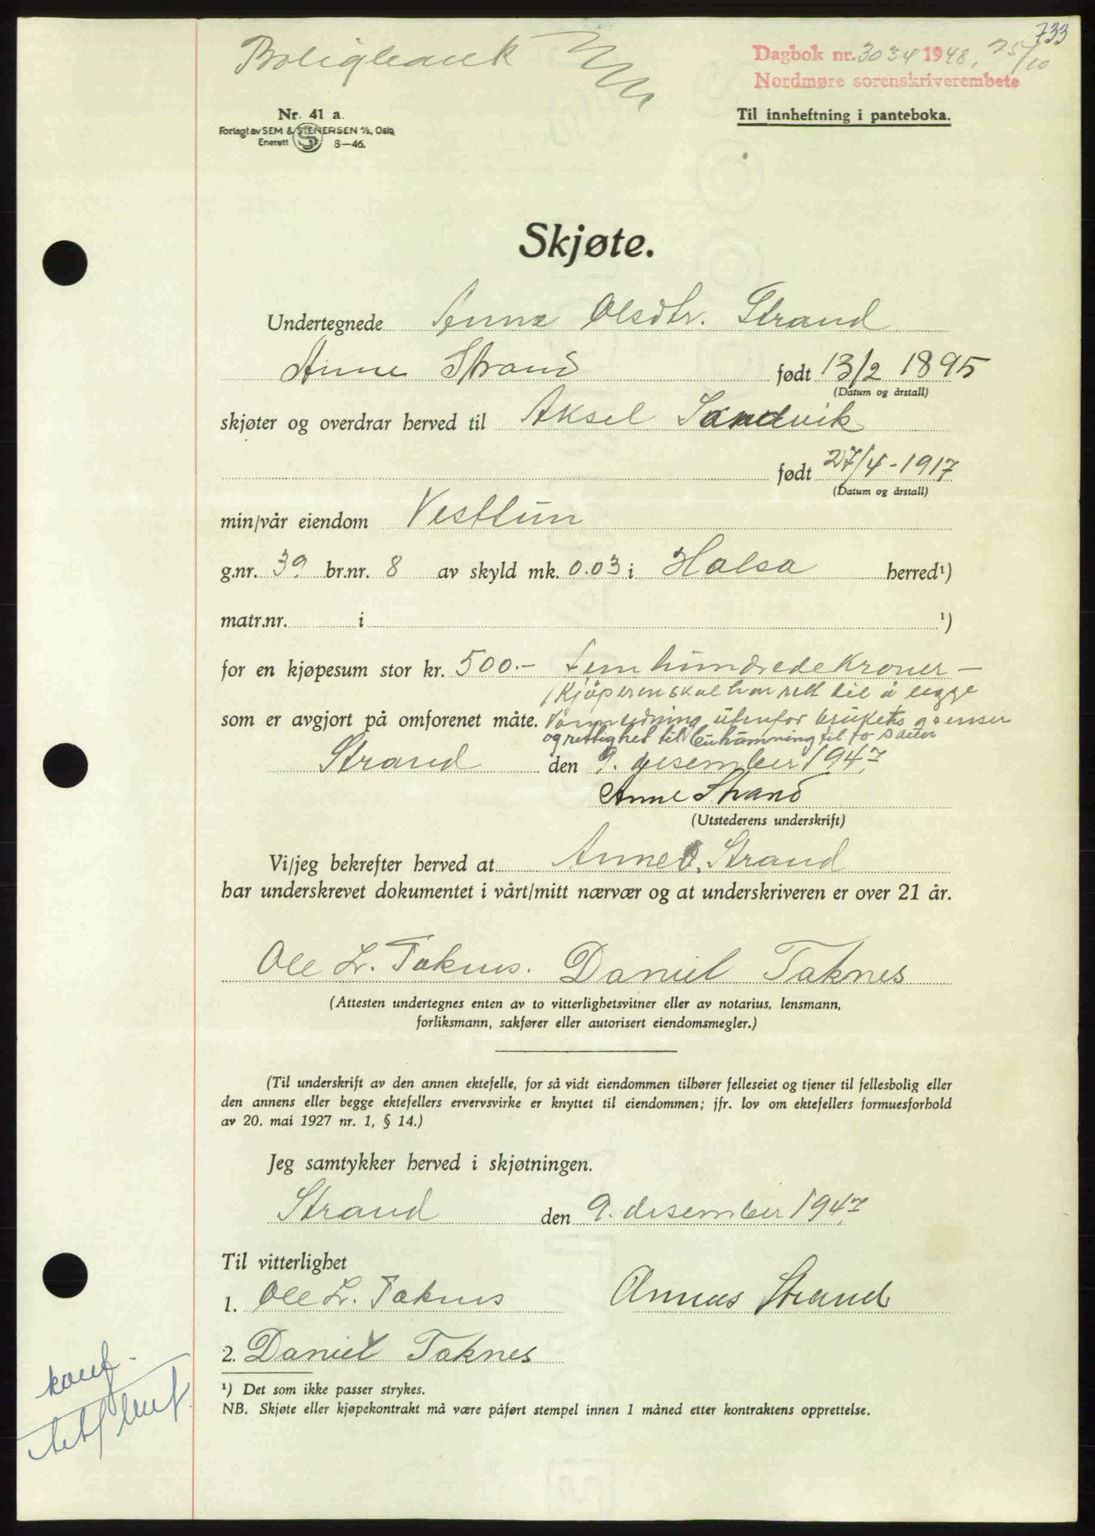 733
Boligbank
Dagbok nr. 3034 1948, 25/10
Nordmøre sorenskriverembete
Nr. 41 a.
Forlagt av SEM & STENERSEN A/S, Oslo
Enerett 8—46.
Til innheftning i panteboka.
Skjøte.
Undertegnede Anna Olsdtr. Strand
Anne Strand født 13/2 1895
(Datum og årstall)
skjøter og overdrar herved til Aksel Sandvik
født 27/4-1917
(Datum og årstall)
min/vår eiendom Vesttun
g.nr. 39 br.nr. 8 av skyld mk. 0.03 i Halsa herred¹)
matr.nr. i ¹)
for en kjøpesum stor kr. 500.- fem hundrede kroner —
Kjøperen skal har rett til å legge
som er avgjort på omforenet måte. Vannledning utenfor brukets grenser
og rettighet til til to sauer
Strand den 9. desember 1947
Anne Strand
(Utstederens underskrift)
Vi/jeg bekrefter herved at Anne O. Strand
har underskrevet dokumentet i vårt/mitt nærvær og at underskriveren er over 21 år.
Ole L. Taknes. Daniel Taknes
(Attesten undertegnes enten av to vitterlighetsvitner eller av notarius, lensmann,
forliksmann, sakfører eller autorisert eiendomsmegler.)
(Til underskrift av den annen ektefelle, for så vidt eiendommen tilhører felleseiet og tjener til fellesbolig eller
den annens eller begge ektefellers ervervsvirke er knyttet til eiendommen; jfr. lov om ektefellers formuesforhold
av 20. mai 1927 nr. 1, § 14.)
Jeg samtykker herved i skjøtningen.
Strand den 9. desember 1947
Til vitterlighet
1. Ole L. Taknes Annas Strand
2. Daniel Taknes
konf.
¹) Det som ikke passer strykes.
NB. Skjøte eller kjøpekontrakt må være påført stempel innen 1 måned etter kontraktens opprettelse.